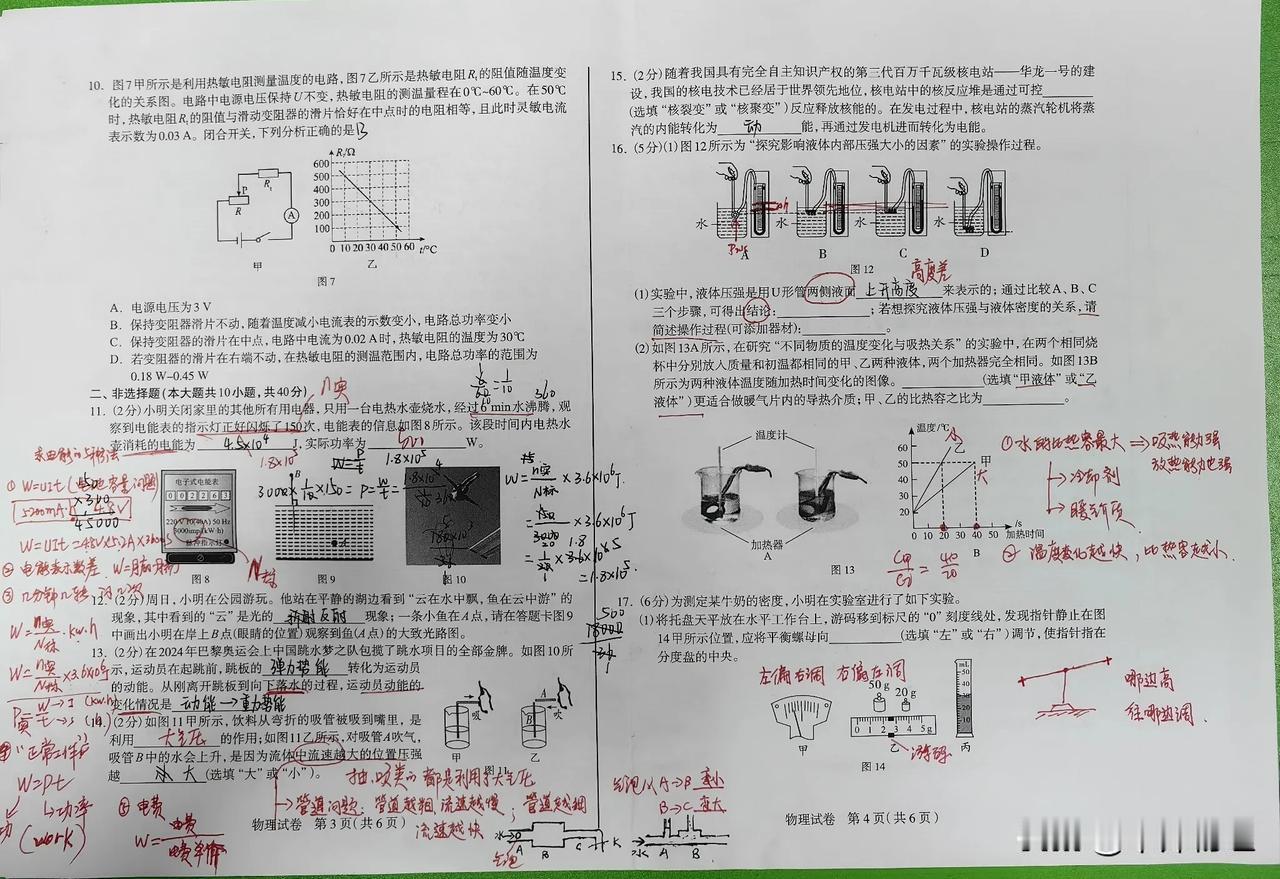 10. 图7甲所示是利用热敏电阻测量温度的电路,图7乙所示是热敏电阻R₁的阻值随温度变
化的关系图。电路中电源电压保持U不变,热敏电阻的测温量程在0℃~60℃。在50℃
时,热敏电阻R₁的阻值与滑动变阻器的滑片恰好在中点时的电阻相等,且此时灵敏电流
表示数为0.03 A。闭合开关,下列分析正确的是 B
R/Ω
600
500
400
300
200
100
0 10 20 30 40 50 60 t/℃
R₁
P
R
A
甲
乙
图7
A. 电源电压为3 V
B. 保持变阻器滑片不动,随着温度减小电流表的示数变小,电路总功率变小
C. 保持变阻器的滑片在中点,电路中电流为0.02 A时,热敏电阻的温度为30℃
D. 若变阻器的滑片在右端不动,在热敏电阻的测温范围内,电路总功率的范围为
0.18 W~0.45 W
二、非选择题(本大题共10小题,共40分)
n实
360
11. (2分)小明关闭家里的其他所有用电器,只用一台电热水壶烧水,经过6 min水沸腾,观
察到电能表的指示灯正好闪烁了150次,电能表的信息如图8所示。该段时间内电热水
壶消耗的电能为 4.5×10⁴ J,实际功率为 500 W。
1.8×10⁵
1.8×10⁵
① W=UIt
5200mA·h 4.5V
45000
② 电能表示数差
W=n实/N标·kw·h
W=n实/N标×3.6×10⁶J
P=W/t
"正常工作"
W=Pt
功率
功
(work)
⑤ 电费
W=电费/电费单价
电子式电能表
0 0 2 2 6 3
220 V 10(40A) 50 Hz
3000imp/(kW·h)
N标
图8
B
A
图9
图10
3000×1/10×150=P=W/t=
W=n实/N标×3.6×10⁶J
=150/3000×3.6×10⁶J
=1/20×3.6×10⁶
=1.8×10⁵
12. (2分)周日,小明在公园游玩。他站在平静的湖边看到“云在水中飘,鱼在云中游”的
现象,其中看到的“云”是光的 反射 现象;一条小鱼在A点,请在答题卡图9
中画出小明在岸上B点(眼睛的位置)观察到鱼(A点)的大致光路图。
13. (2分)在2024年巴黎奥运会上中国跳水梦之队包揽了跳水项目的全部金牌。如图10所
示,运动员在起跳前,跳板的 弹力势能 转化为运动员
的动能。从刚离开跳板到向下落水的过程,运动员动能的
变化情况是 动能→重力势能
(2分)如图11甲所示,饮料从弯折的吸管被吸到嘴里,是
利用 大气压 的作用;如图11乙所示,对吸管A吹气,
吸管B中的水会上升,是因为流体中流速越大的位置压强
越 小 大 (选填“大”或“小”)。
吸
甲
A
吹
B
乙
图11
抽、吸类的都是利用了大气压
管道问题:管道越粗 流速越慢;管道越细
流速越快
水
A B C K
气泡
气泡从A→B 变小
B→C 变大
水 A B
物理试卷 第3页(共6页)
15. (2分)随着我国具有完全自主知识产权的第三代百万千瓦级核电站——华龙一号的建
设,我国的核电技术已经居于世界领先地位,核电站中的核反应堆是通过可控
(选填“核裂变”或“核聚变”)反应释放核能的。在发电过程中,核电站的蒸汽轮机将蒸
汽的内能转化为 动 能,再通过发电机进而转化为电能。
16. (5分)(1)图12所示为“探究影响液体内部压强大小的因素”的实验操作过程。
水 水 水 水
A B C D
图12
高度差
(1)实验中,液体压强是用U形管两侧液面 上升高度 来表示的;通过比较A、B、C
三个步骤,可得出结论: ;若想探究液体压强与液体密度的关系,请
简述操作过程(可添加器材): 。
(2)如图13A所示,在研究“不同物质的温度变化与吸热关系”的实验中,在两个相同烧
杯中分别放入质量和初温都相同的甲、乙两种液体,两个加热器完全相同。如图13B
所示为两种液体温度随加热时间变化的图像。 (选填“甲液体”或“乙
液体”)更适合做暖气片内的导热介质;甲、乙的比热容之比为 。
温度计
加热器
A
温度/℃
60
50
40
30
20
10
0 10 20 30 40
/s
加热时间
乙
甲
大
B
图13
① 水的比热容最大⇒吸热能力强
放热能力也强
冷却剂
暖气介质
② 温度变化越快,比热容越小.
C甲/C乙=40/20
17. (6分)为测定某牛奶的密度,小明在实验室进行了如下实验。
(1)将托盘天平放在水平工作台上,游码移到标尺的“0”刻度线处,发现指针静止在图
14甲所示位置,应将平衡螺母向 (选填“左”或“右”)调节,使指针指在
分度盘的中央。
左偏右调 右偏左调
50 g 20 g
0 1 2 3 4 5g
甲
乙
丙
游码
图14
哪边高
往哪边调.
物理试卷 第4页(共6页)